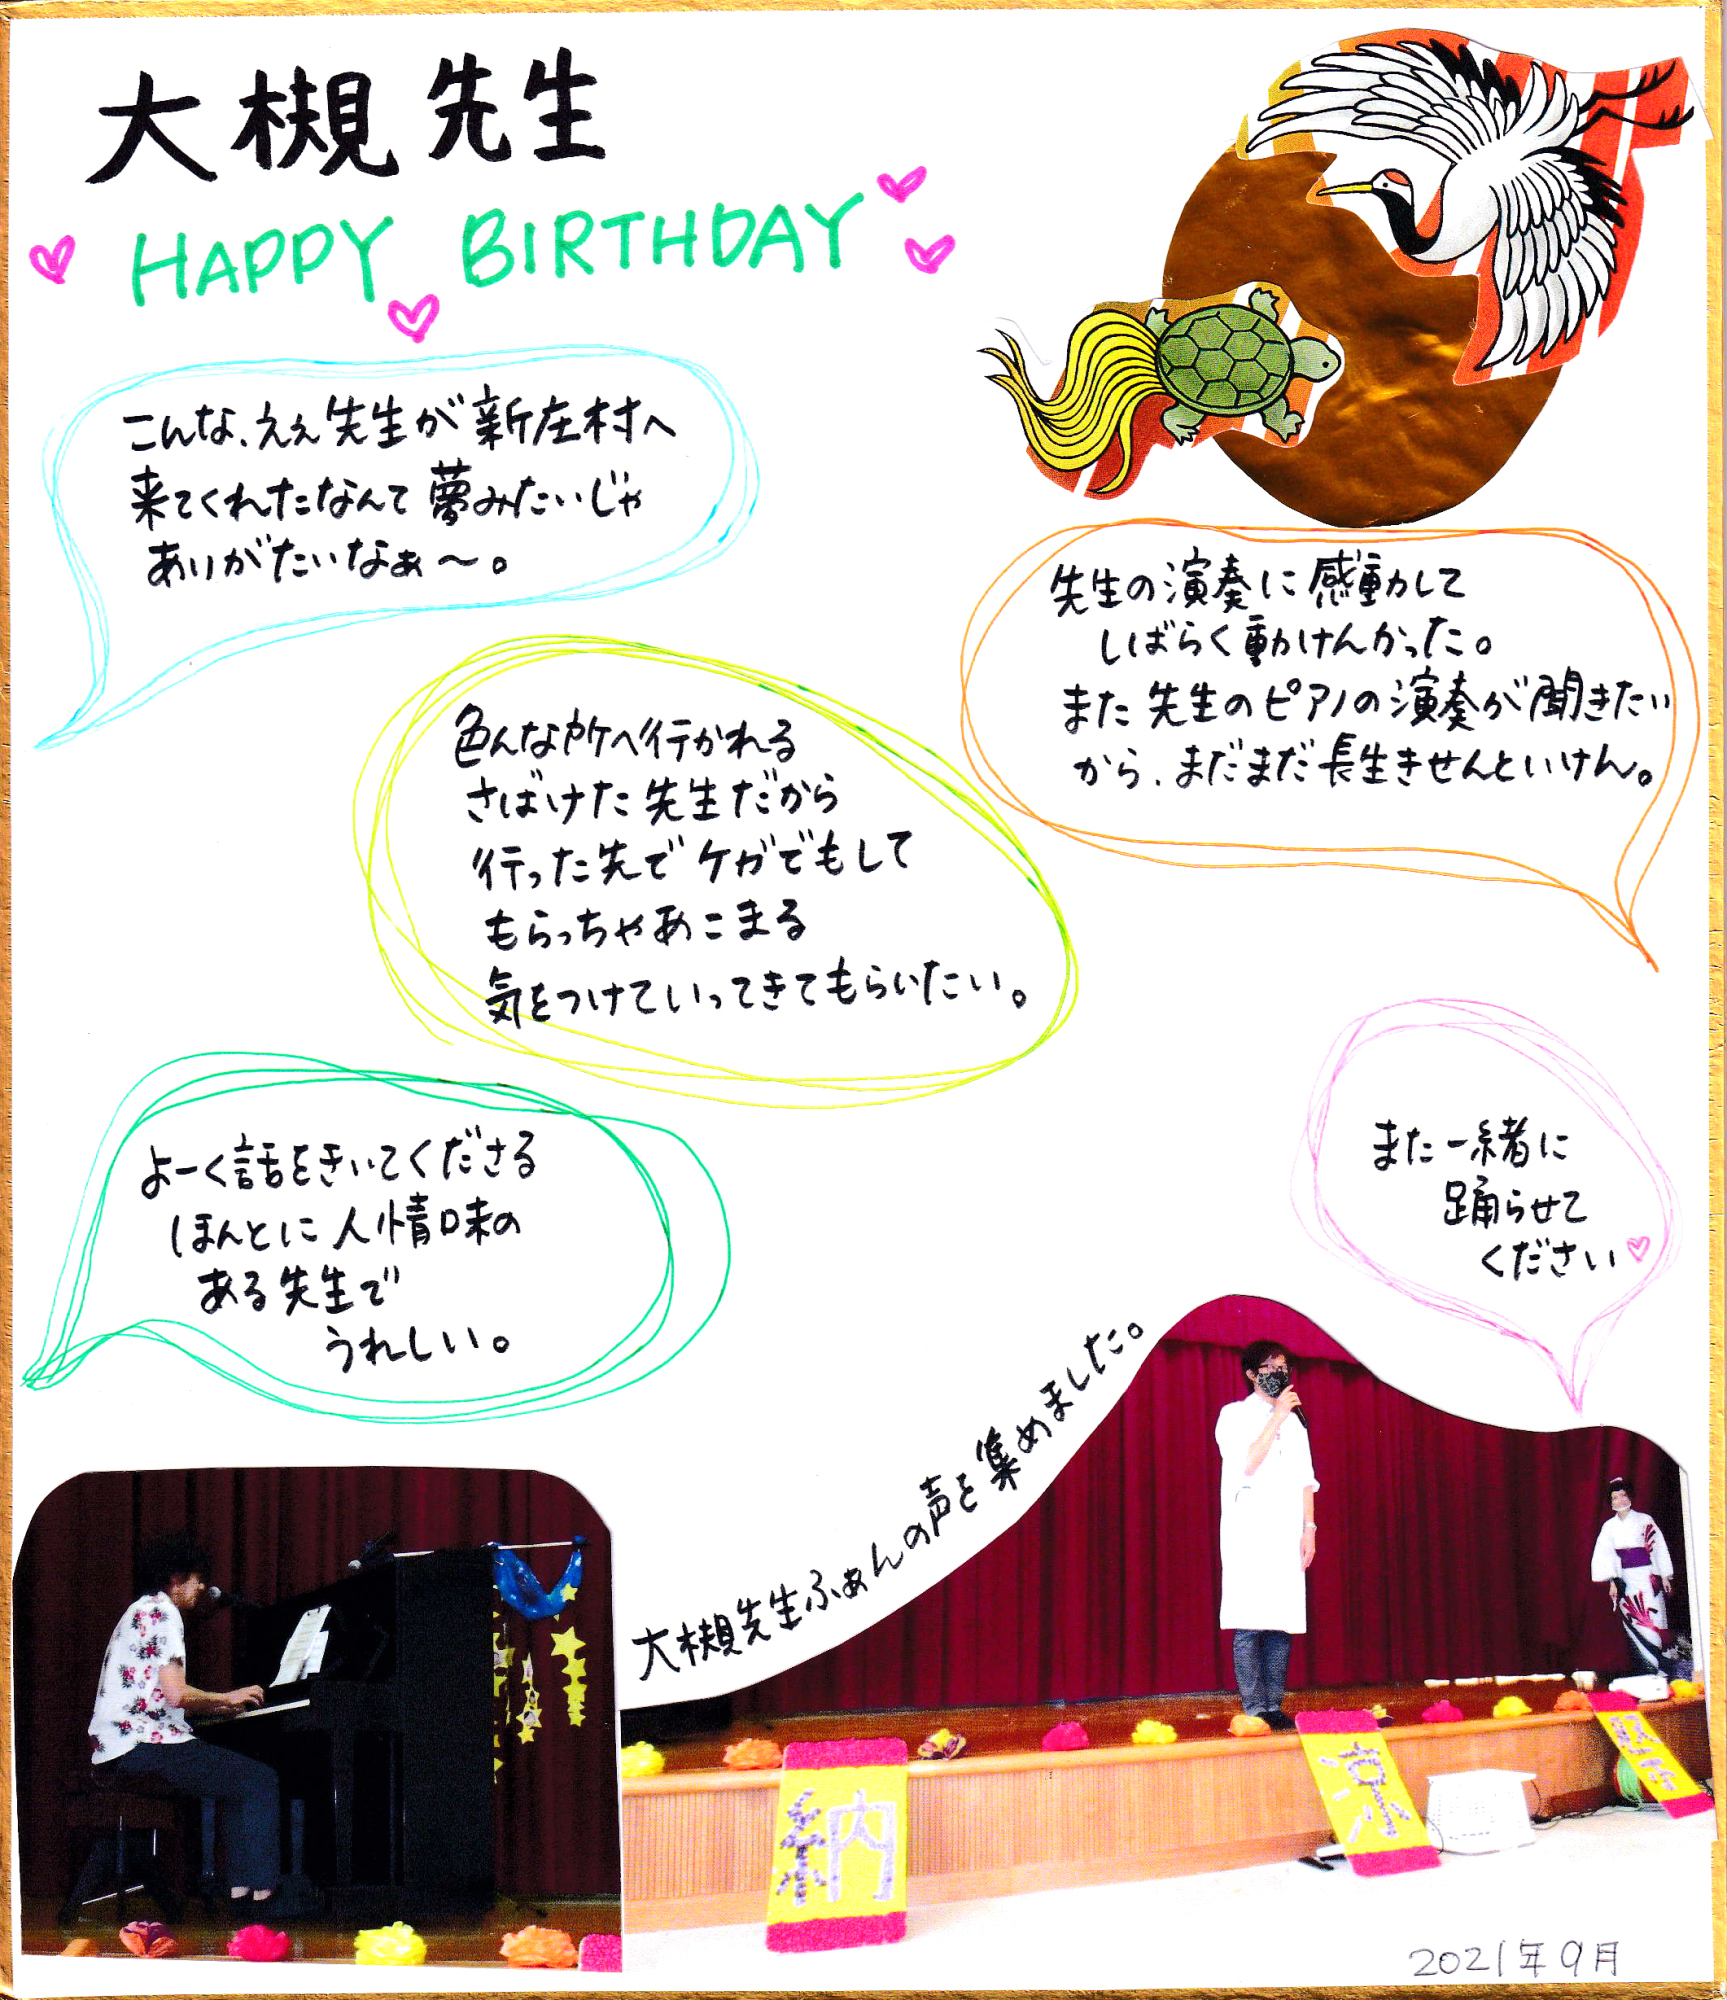 大槻先生
HAPPY BIRTHDAY
こんな、ええ先生が新庄村へ
来てくれたなんて夢みたいじゃ
ありがたいなぁ〜。
先生の演奏に感動して
しばらく動けんかった。
また先生のピアノの演奏が聞きたい
から、まだまだ長生きせんといけん。
色んな所へ行かれる
さばけた先生だから
行った先でケガでもして
もらっちゃあこまる
気をつけていってきてもらいたい。
よーく話をきいてくださる
ほんとに人情味の
ある先生で
うれしい。
また一緒に
踊らせて
ください
大槻先生ふぁんの声を集めました。
納
涼
2021年9月